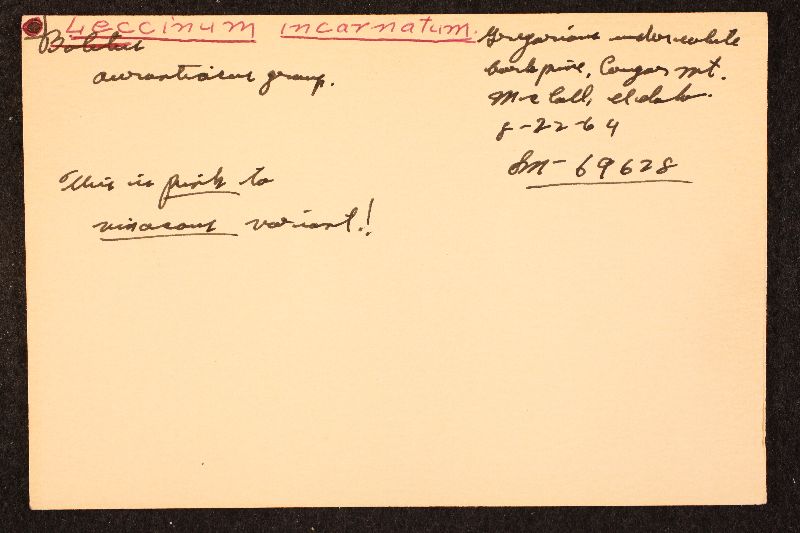 Leccinum incarnatum.
Boletus
aurantiacus group.
This is pink to
vinaceous variant!
Gregarious under white
bark pine, Cougar mt.
McCall, Idaho.
8-22-64
Sm- 69628